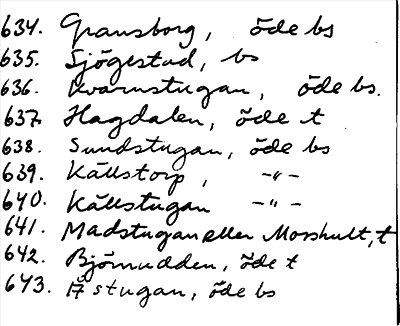 634. Gransborg, öde bs
635. Sjögestad, bs
636. Kvarnstugan, öde bs.
637. Hagdalen, öde t
638. Sundstugan, öde bs
639. Källstorp, -"-
640. Källstugan -"-
641. Madstugan eller Mosshult, t
642. Björnudden, öde t
643. Åstugan, öde bs